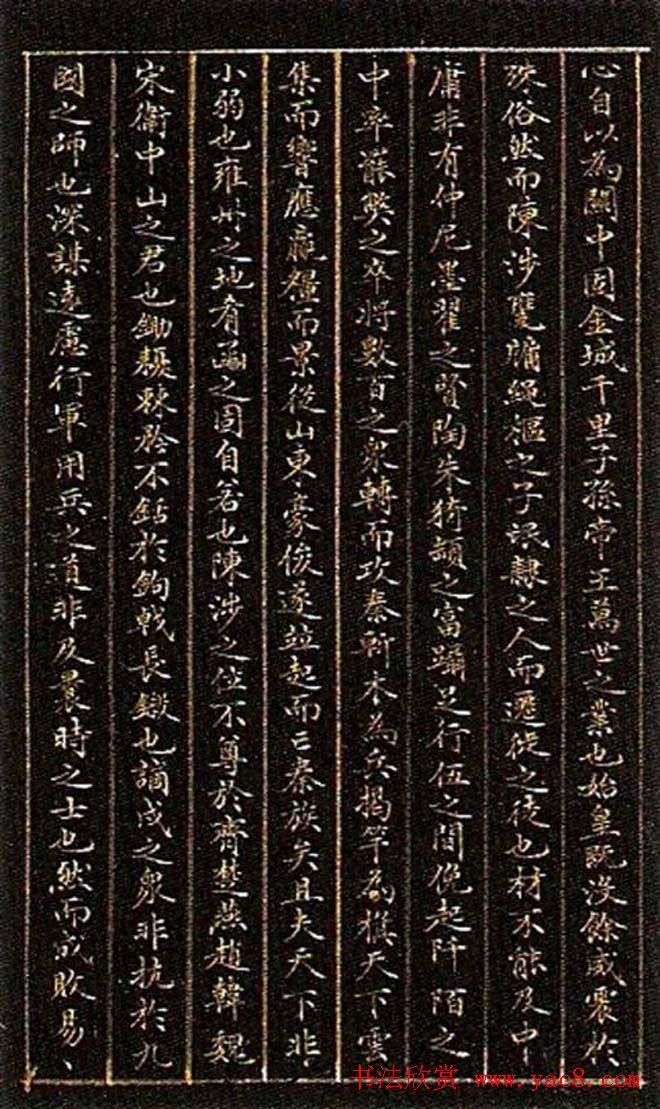 心自以為關中固金城千里子孫帝王萬世之業也始皇既沒餘威震於
殊俗然而陳涉甕牖繩樞之子氓隸之人而遷徙之徒也材不能及中
庸非有仲尼墨翟之賢陶朱猗頓之富躡足行伍之間俛起阡陌之
中率疲弊之卒將數百之眾轉而攻秦斬木為兵揭竿為旗天下雲
集而響應贏糧而景從山東豪俊遂並起而亡秦族矣且夫天下非
小弱也雍州之地肴函之固自若也陳涉之位不尊於齊楚燕趙韓魏
宋衛中山之君也鋤耰棘矜不銛於鉤戟長鎩也謫戍之眾非抗於九
國之師也深謀遠慮行軍用兵之道非及曩時之士也然而成敗易丶
书法欣赏 www.yac8.com